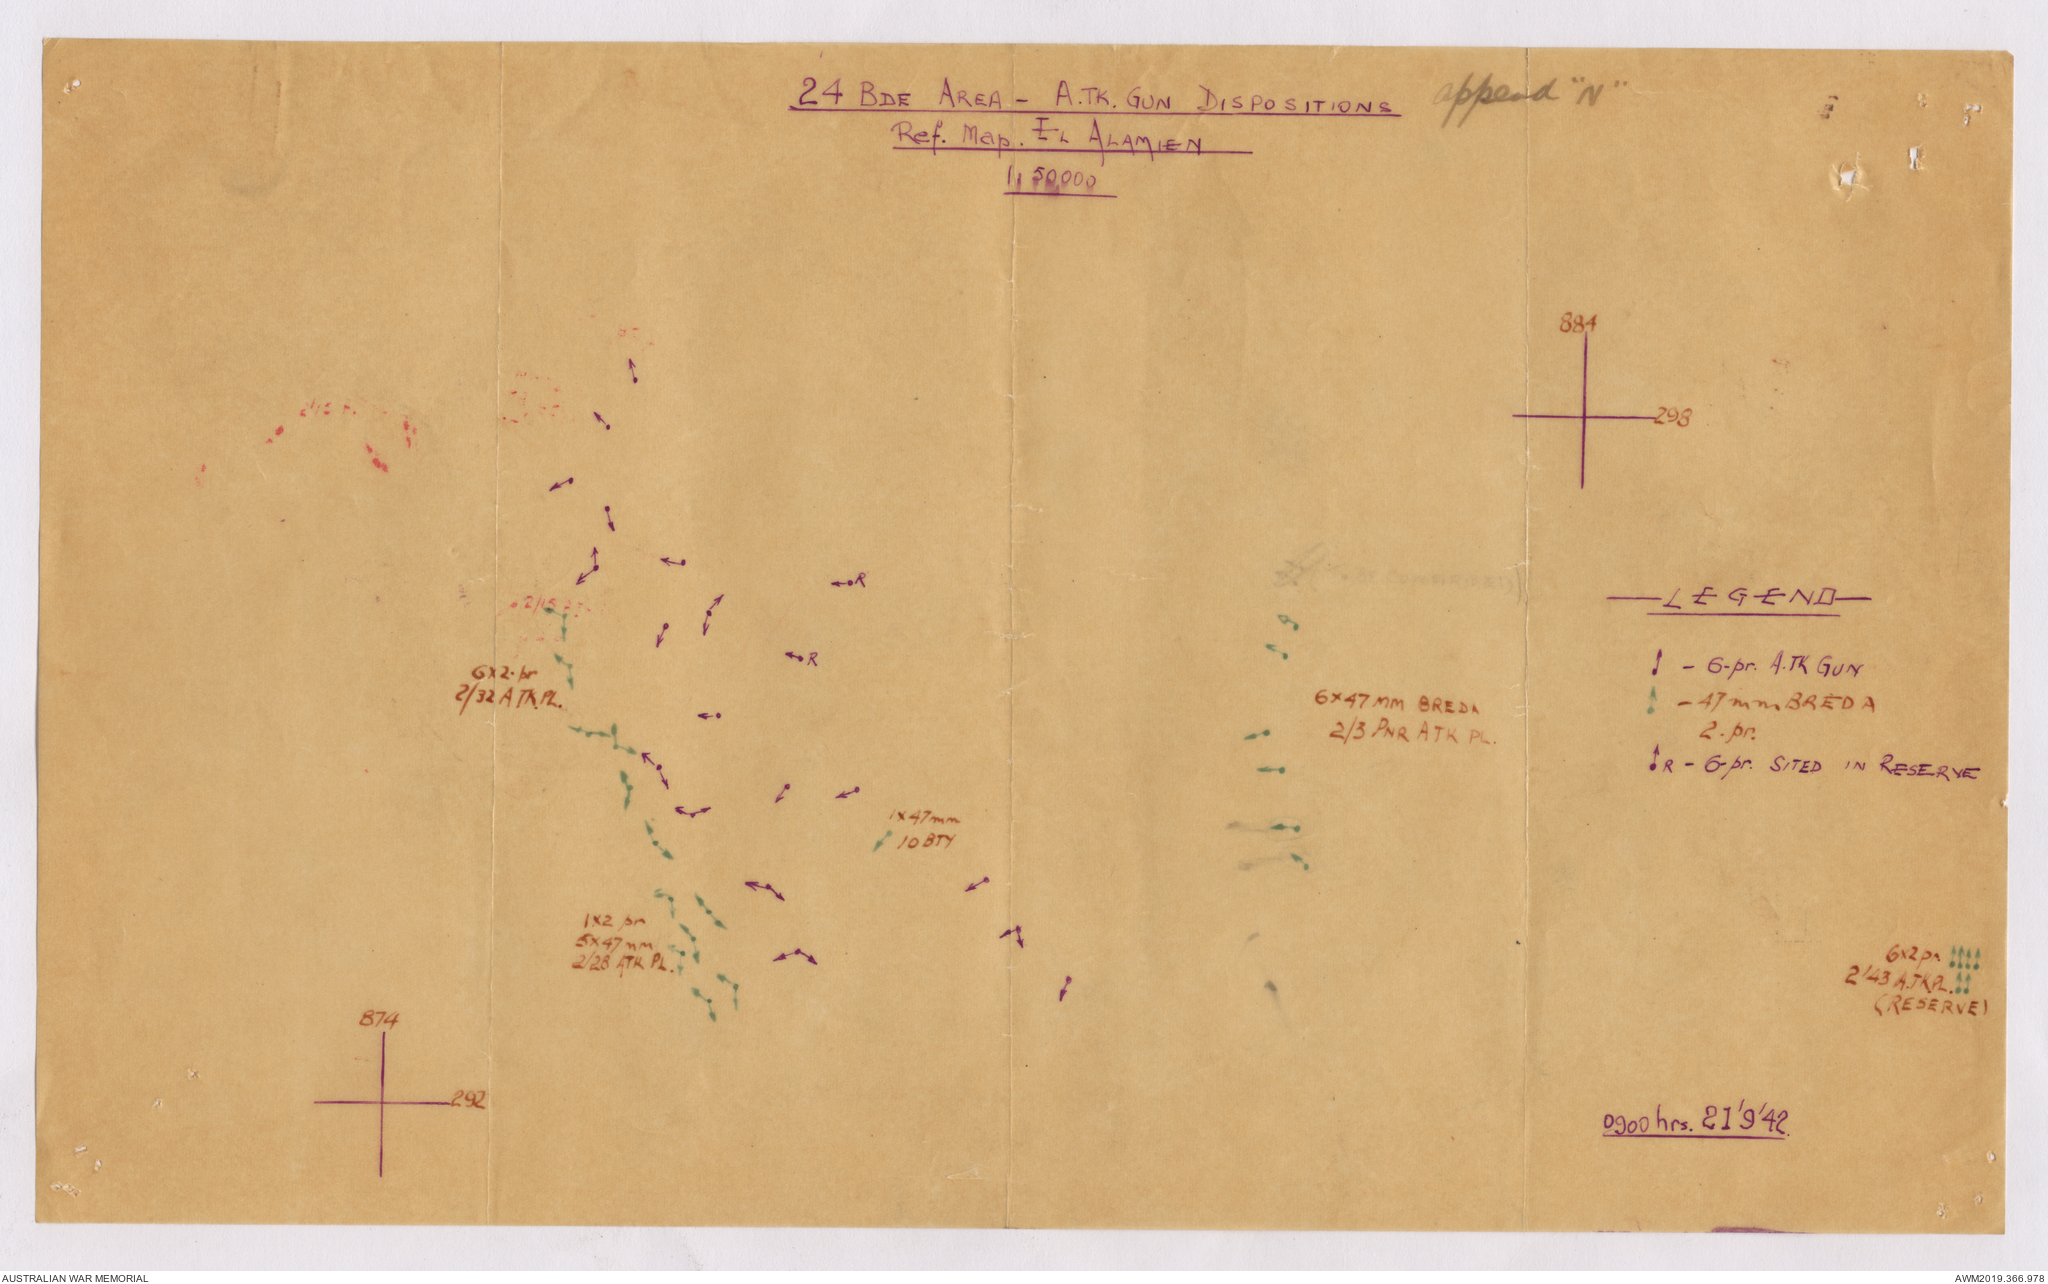 24 BDE AREA - A.TK. GUN DISPOSITIONS
append "N"
Ref. Map. EL ALAMIEN
1:50000
884
298
R
R
LEGEND
- 6-pr. A.TK GUN
- 47mm BREDA
2. pr.
R - 6-pr. SITED IN RESERVE
6x2-pr
2/32 A TK.PL.
6x47mm BREDA
2/3 PNR ATK PL.
1x47mm
10 BTY
1x2 pr
5x47mm
2/28 ATK PL.
6x2pr.
2/43 A.TK.PL.
(RESERVE)
874
292
0900 hrs. 21'9'42.
AUSTRALIAN WAR MEMORIAL
AWM2019.366.978